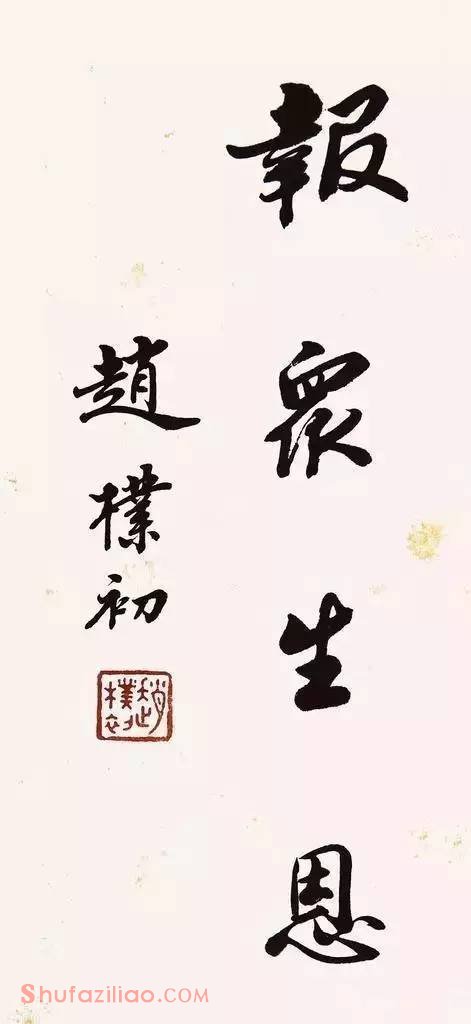 報眾生恩
趙樸初
趙樸初
Shufaziliao.com